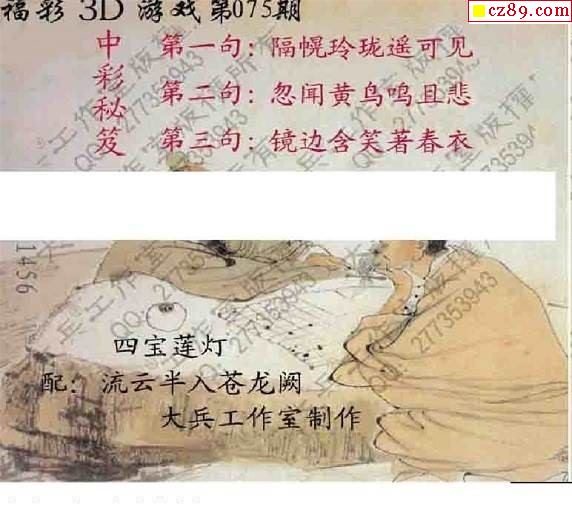 福彩 3D 游戏第075期
cz89.com
中彩秘笈
第一句：隔幌玲珑遥可见
第二句：忽闻黄鸟鸣且悲
第三句：镜边含笑著春衣
兵工作室版权所有
QQ：277353943
1456
四宝莲灯
配：流云半入苍龙阙
大兵工作室制作